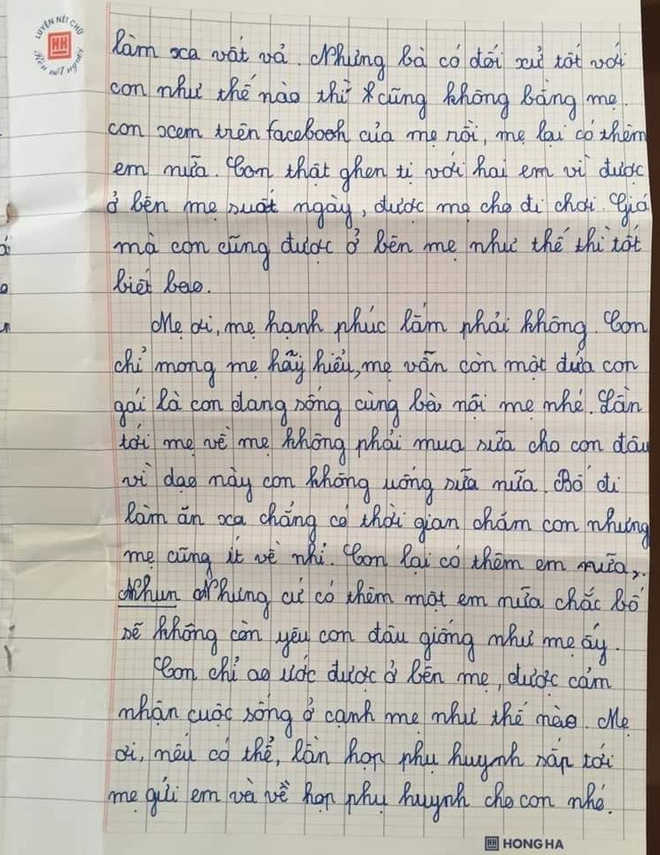 LUYỆN NÉT CHỮ
Rèn nết người
làm xa vất vả. Nhưng bà có đối xử tốt với
con như thế nào thì cũng không bằng mẹ.
con xem trên facebook của mẹ rồi, mẹ lại có thêm
em nữa. Con thật ghen tị với hai em vì được
ở bên mẹ suốt ngày, được mẹ cho đi chơi. Giá
mà con cũng được ở bên mẹ như thế thì tốt
biết bao.
Mẹ ơi, mẹ hạnh phúc lắm phải không. Con
chỉ mong mẹ hãy hiểu, mẹ vẫn còn một đứa con
gái là con đang sống cùng bà nội mẹ nhé. Lần
tới mẹ về mẹ không phải mua sữa cho con đâu
vì dạo này con không uống sữa nữa. Bố đi
làm ăn xa chẳng có thời gian chăm con nhưng
mẹ cũng ít về nhỉ. Con lại có thêm em nữa,
Nhun Nhưng cứ có thêm một em nữa chắc bố
sẽ không còn yêu con đâu giống như mẹ ấy.
Con chỉ ao ước được ở bên mẹ, được cảm
nhận cuộc sống ở cạnh mẹ như thế nào. Mẹ
ơi, nếu có thể, lần họp phụ huynh sắp tới
mẹ gửi em và về họp phụ huynh cho con nhé.
HONG HA